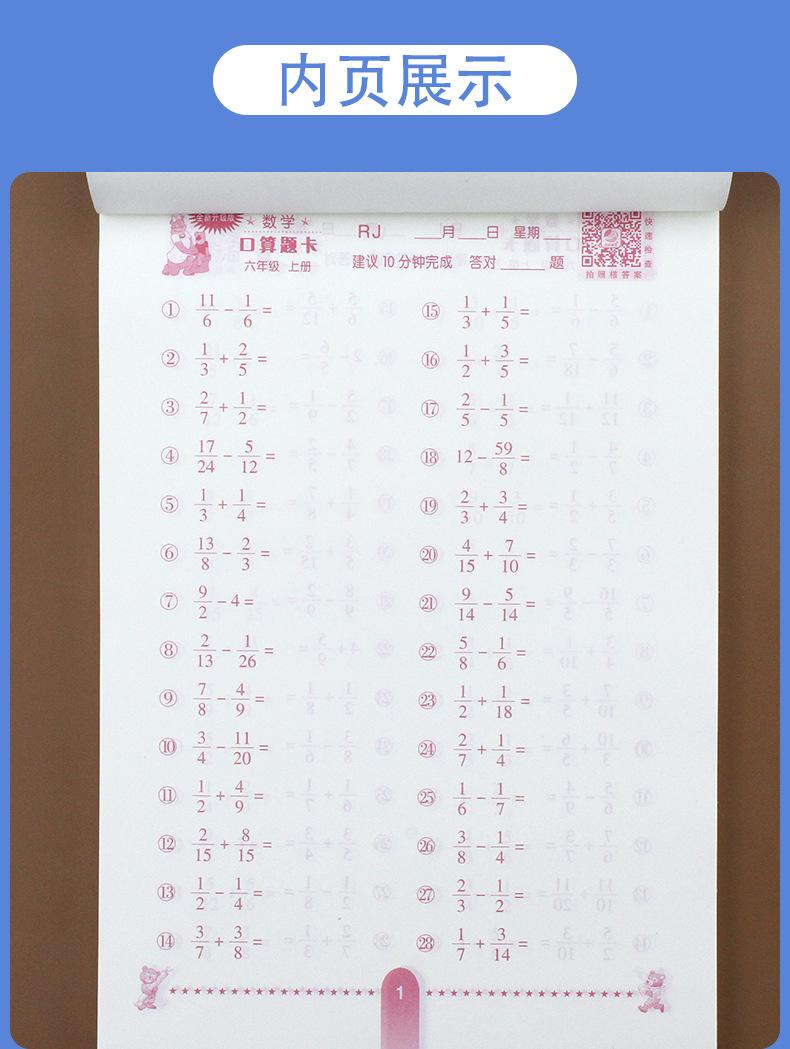 内页展示
全新升级版
数学
RJ ___月___日 星期____
口算题卡
六年级 上册 建议10分钟完成 答对______题
快速检查
拍照核答案
① 11/6 - 1/6 =
② 1/3 + 2/5 =
③ 2/7 + 1/2 =
④ 17/24 - 5/12 =
⑤ 1/3 + 1/4 =
⑥ 13/8 - 2/3 =
⑦ 9/2 - 4 =
⑧ 2/13 - 1/26 =
⑨ 7/8 - 4/9 =
⑩ 3/4 - 11/20 =
⑪ 1/2 + 4/9 =
⑫ 2/15 + 8/15 =
⑬ 1/2 - 1/4 =
⑭ 3/7 + 3/8 =
⑮ 1/3 + 1/5 =
⑯ 1/2 + 3/5 =
⑰ 2/5 - 1/5 =
⑱ 12 - 59/8 =
⑲ 2/3 + 3/4 =
⑳ 4/15 + 7/10 =
㉑ 9/14 - 5/14 =
㉒ 5/8 - 1/6 =
㉓ 1/2 + 1/18 =
㉔ 2/7 + 1/4 =
㉕ 1/6 - 1/7 =
㉖ 3/8 - 1/4 =
㉗ 2/3 - 1/2 =
㉘ 1/7 + 3/14 =
1